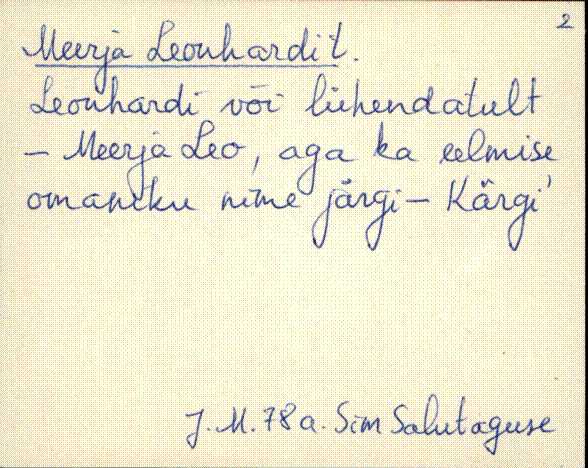 2
Meerja Leonhardi't.
Leonhardi või lühendatult
– Meerja Leo, aga ka eelmise
omaniku nime järgi – Kärgi'
J. M. 78 a. Sim Salutaguse